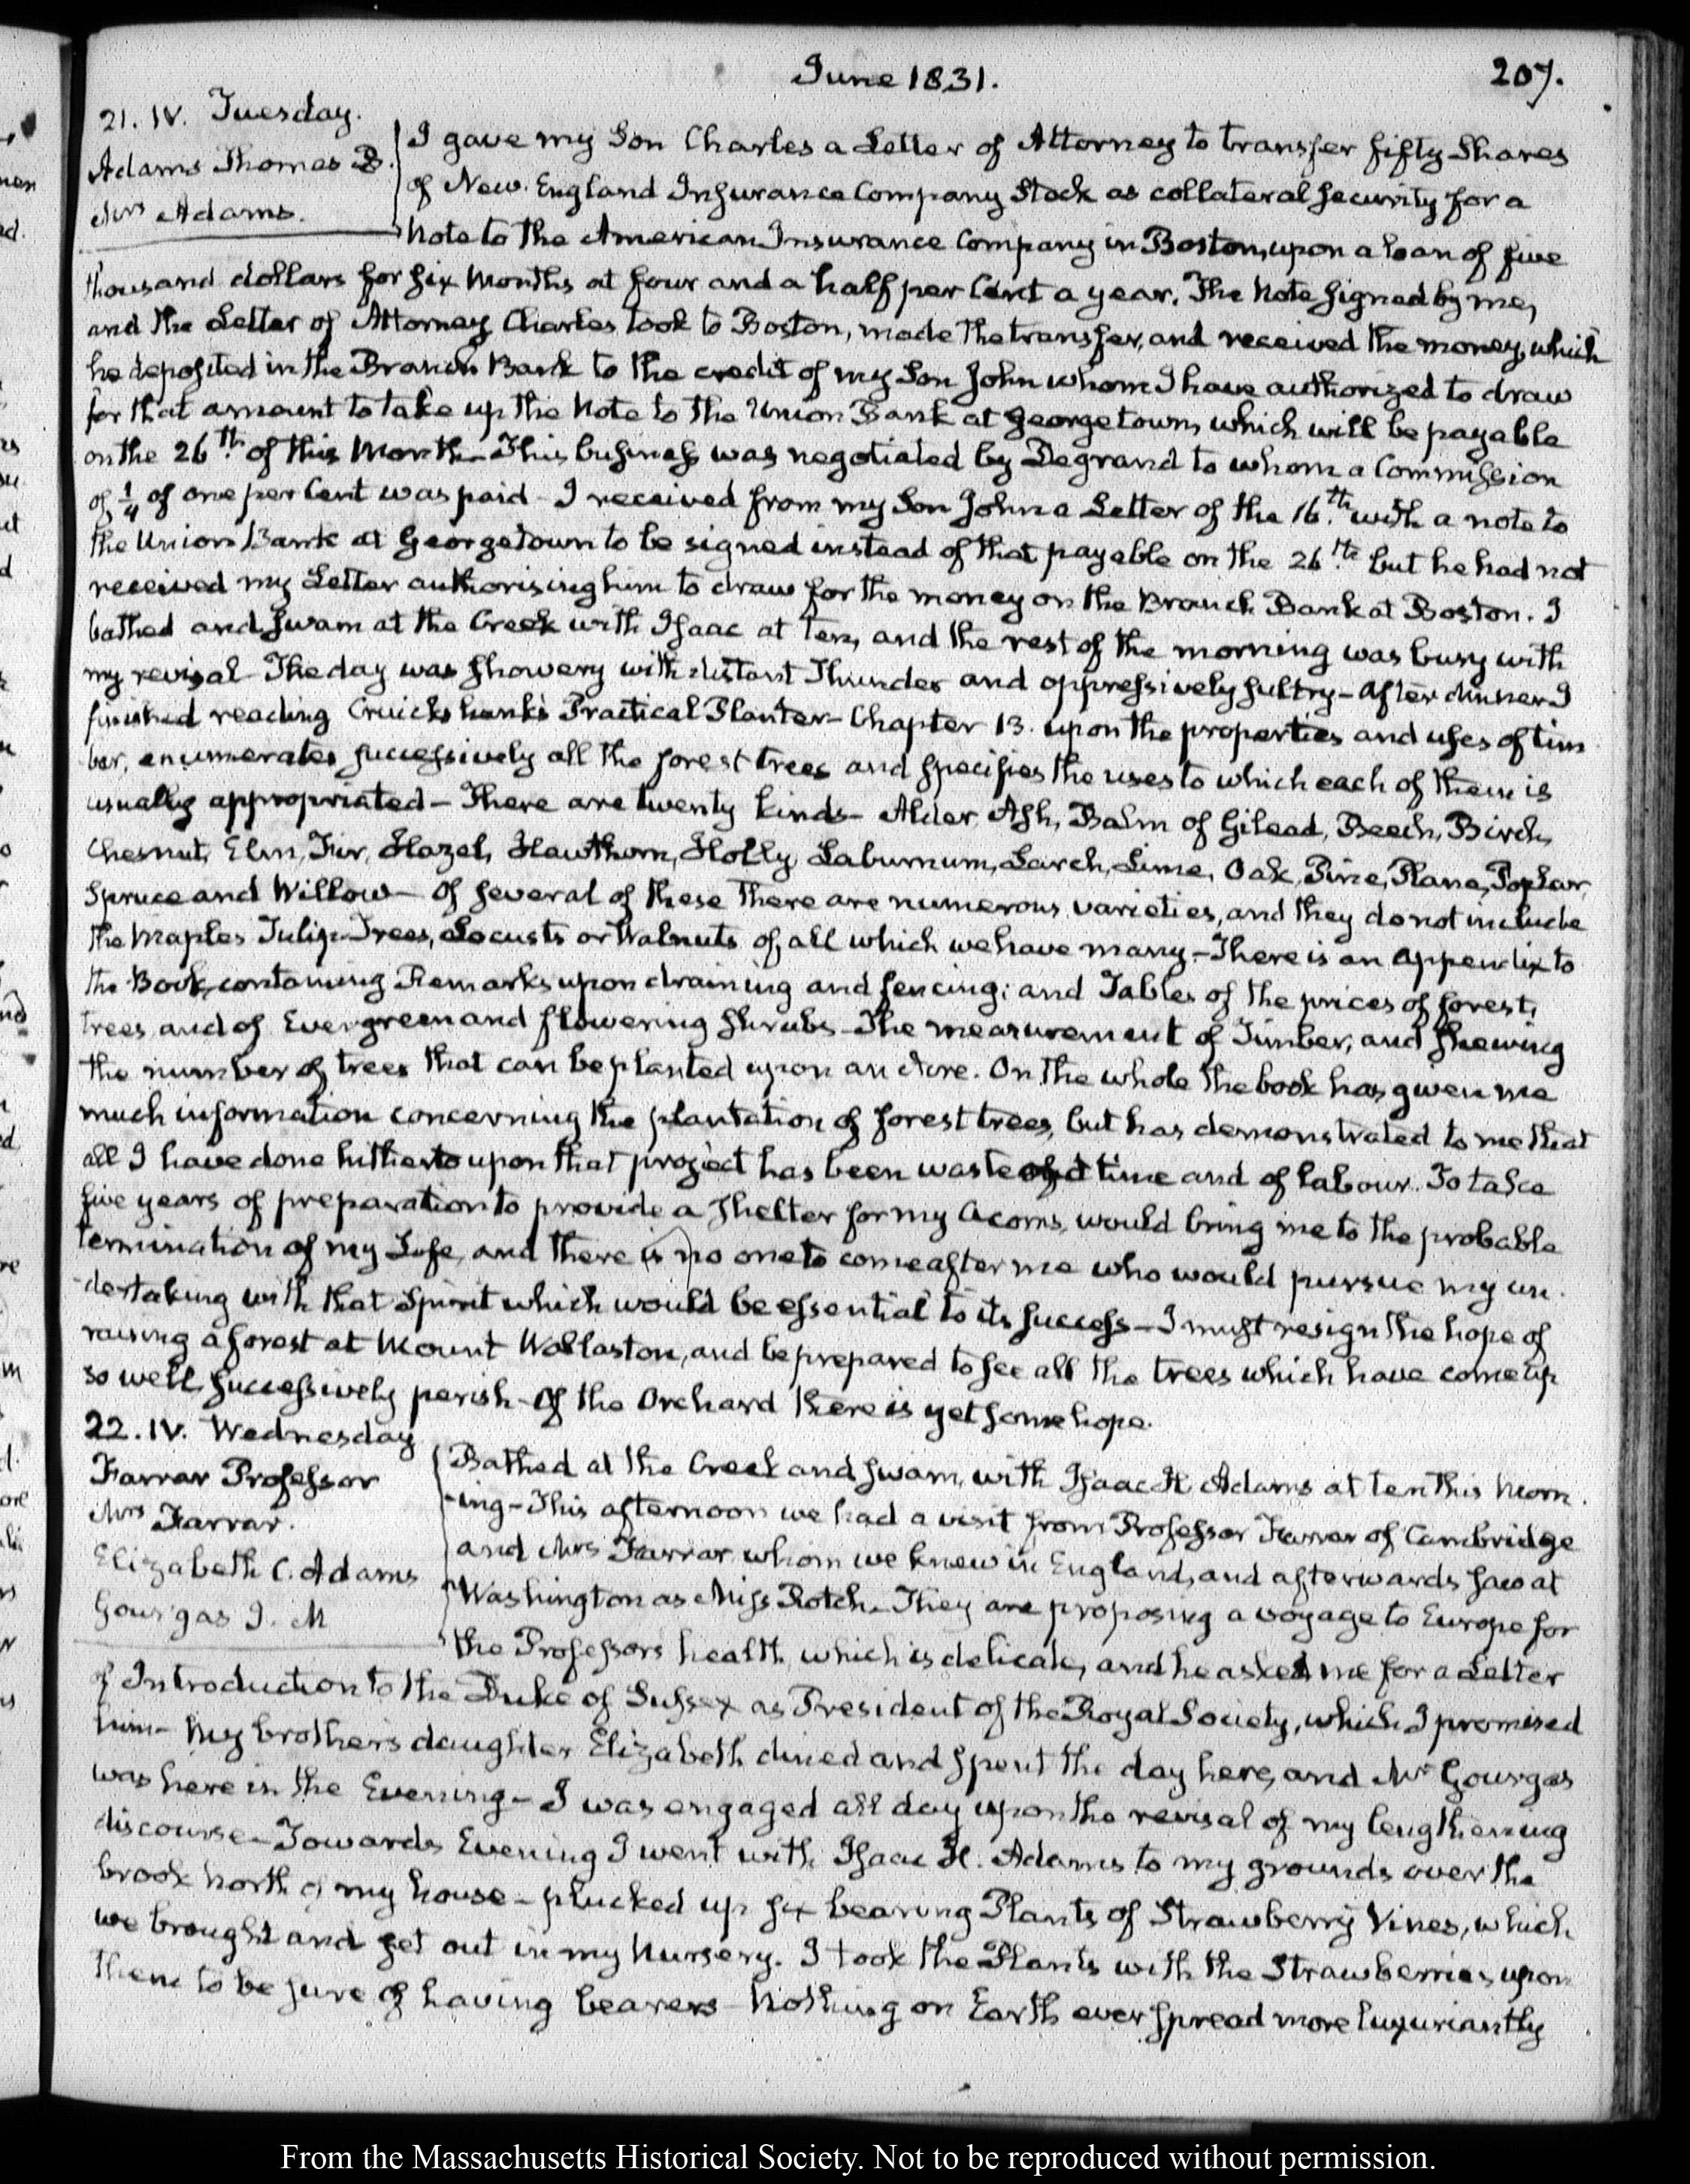 June 1831.
207.
21. IV. Tuesday.
Adams Thomas B.
Mrs Adams.
I gave my Son Charles a Letter of Attorney to transfer fifty Shares
of New. England Insurance Company Stock as collateral security for a
Note to the American Insurance Company in Boston, upon a loan of five
thousand dollars for six Months at four and a half per Cent a year. The Note signed by me,
and the Letter of Attorney Charles took to Boston, made the transfer, and received the money, which
he deposited in the Branch Bank to the credit of my Son John whom I have authorized to draw
for that amount to take up the Note to the Union Bank at Georgetown, which will be payable
on the 26th. of this Month - This business was negotiated by Degrand to whom a Commission
of 1/4 of one per Cent was paid - I received from my Son John a Letter of the 16.th with a note to
the Union Bank at Georgetown to be signed instead of that payable on the 26.th but he had not
received my Letter authorising him to draw for the money on the Branch Bank at Boston. I
bathed and swam at the Creek with Isaac at ten, and the rest of the morning was busy with
my revisal - The day was showery with distant Thunder and oppressively sultry - After dinner I
finished reading Cruickshank's Practical Planter - Chapter 13. upon the properties and uses of tim
ber, enumerates successively all the forest trees and specifies the uses to which each of them is
usually appropriated - There are twenty kinds - Alder, Ash, Balm of Gilead, Beech, Birch,
Chesnut, Elm, Fir, Hazel, Hawthorn, Holly, Laburnum, Larch, Lime, Oak, Pine, Plane, Poplar,
Spruce and Willow - Of several of these there are numerous varieties, and they do not include
the Maples Tulip-Trees, Locusts or Walnuts of all which we have many - There is an Appendix to
the Book, containing Remarks upon draining and fencing; and Tables of the prices of forest,
trees and of Evergreen and flowering shrubs - The measurement of Timber, and shewing
the number of trees that can be planted upon an Acre. On the whole the book has given me
much information concerning the plantation of forest trees, but has demonstrated to me that
all I have done hitherto upon that project has been waste of time and of labour. To take
five years of preparation to provide a shelter for my Acorns, would bring me to the probable
termination of my Life, and there is no one to come after me who would pursue my un-
dertaking with that Spirit which would be essential to its success - I must resign the hope of
raising a forest at Mount Wollaston, and be prepared to see all the trees which have come up
so well, successively perish - Of the Orchard there is yet some hope.
22. IV. Wednesday
Farrar Professor
Mrs Farrar.
Elizabeth C. Adams
Gourgas J. M
Bathed at the Creek and swam, with Isaac H. Adams at ten this Morn-
-ing - This afternoon we had a visit from Professor Farrar of Cambridge
and Mrs Farrar whom we knew in England, and afterwards saw at
Washington as Miss Rotch - They are proposing a voyage to Europe for
the Professors health, which is delicate, and he asked me for a Letter
of Introduction to the Duke of Sussex as President of the Royal Society, which I promised
him - My brother's daughter Elizabeth dined and spent the day here, and Mr Gourgas
was here in the Evening - I was engaged all day upon the revisal of my lengthening
discourse - Towards Evening I went with Isaac H. Adams to my grounds over the
brook North of my house - plucked up six bearing Plants of Strawberry Vines, which
we brought and set out in my Nursery. I took the Plants with the Strawberries upon
them to be sure of having bearers - Nothing on Earth ever spread more luxuriantly
From the Massachusetts Historical Society. Not to be reproduced without permission.